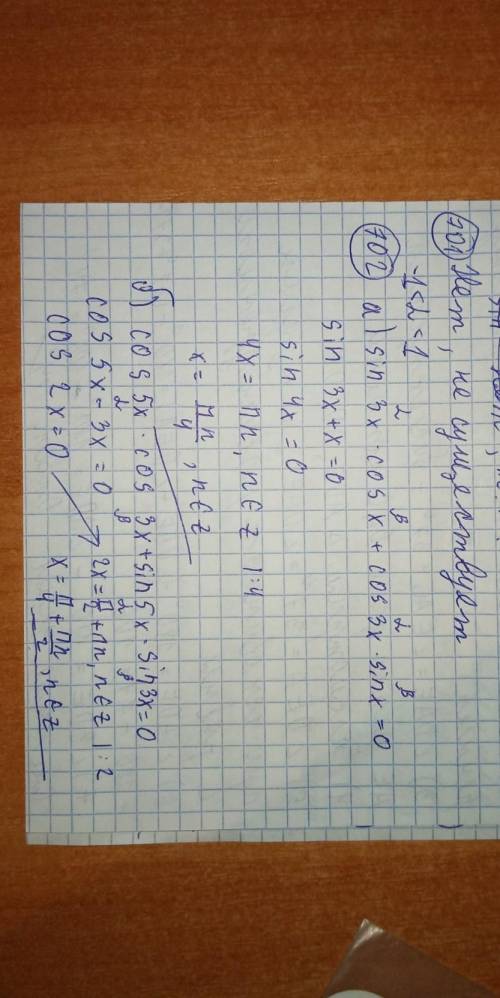 701 Нет, не существует
-1<α<1
702 а) sin 3x · cos x + cos 3x · sin x = 0
α β α β
sin 3x + x = 0
sin 4x = 0
4x = πn, n∈z |:4
x = πn/4, n∈z
б) cos 5x · cos 3x + sin 5x · sin 3x = 0
α β α β
cos 5x - 3x = 0
2x = π/2 + πn, n∈z |:2
cos 2x = 0
x = π/4 + πn/2, n∈z